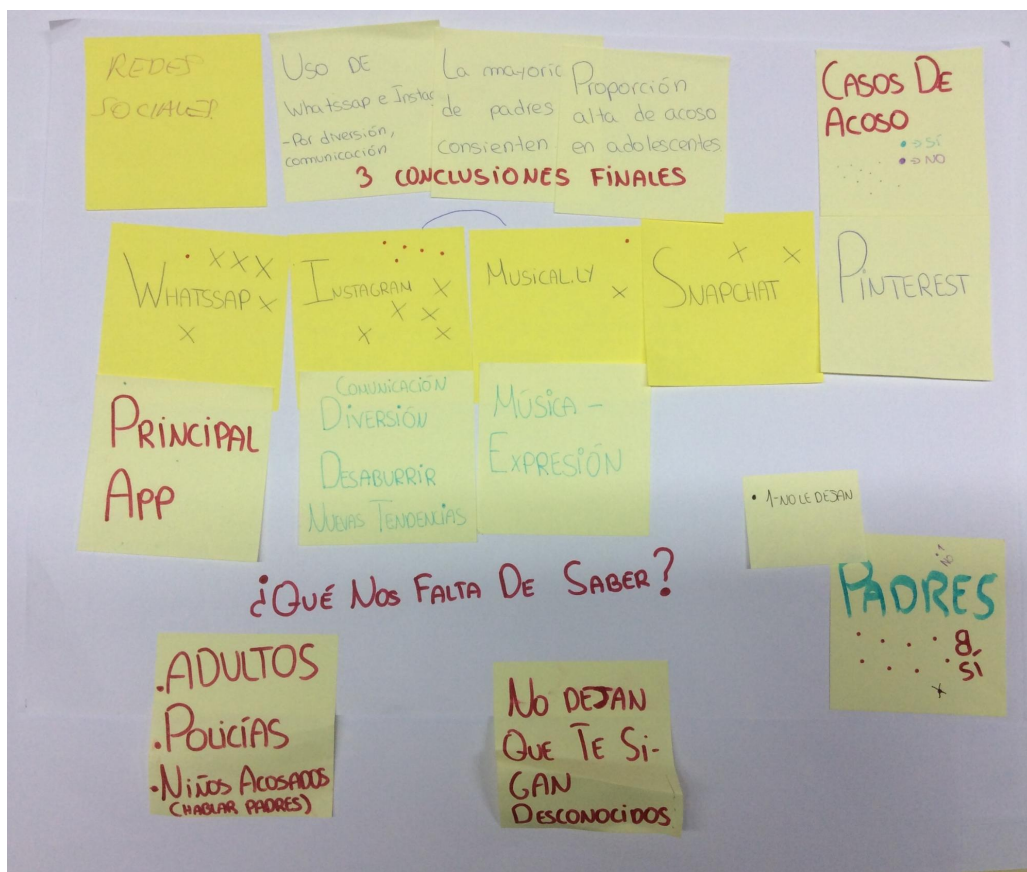 REDES
SOCIALES.
USO DE
Whatssap e Instar
-Por diversión,
comunicación
La mayoric
de padres
consienten
Proporción
alta de acoso
en adolescentes
3 CONCLUSIONES FINALES
CASOS DE
ACOSO
• ⇒ SÍ
• ⇒ NO
WHATSSAP
INSTAGRAM
MUSICAL.LY
SNAPCHAT
PINTEREST
PRINCIPAL
APP
COMUNICACIÓN
DIVERSIÓN
DESABURRIR
NUEVAS TENDENCIAS
MÚSICA -
EXPRESIÓN
• 1-NO LE DEJAN
NO 1
PADRES
8
SÍ
¿QUÉ NOS FALTA DE SABER?
.ADULTOS
.POLICÍAS
.NIÑOS ACOSADOS
(HABLAR PADRES)
NO DEJAN
QUE TE SI-
GAN
DESCONOCIDOS.